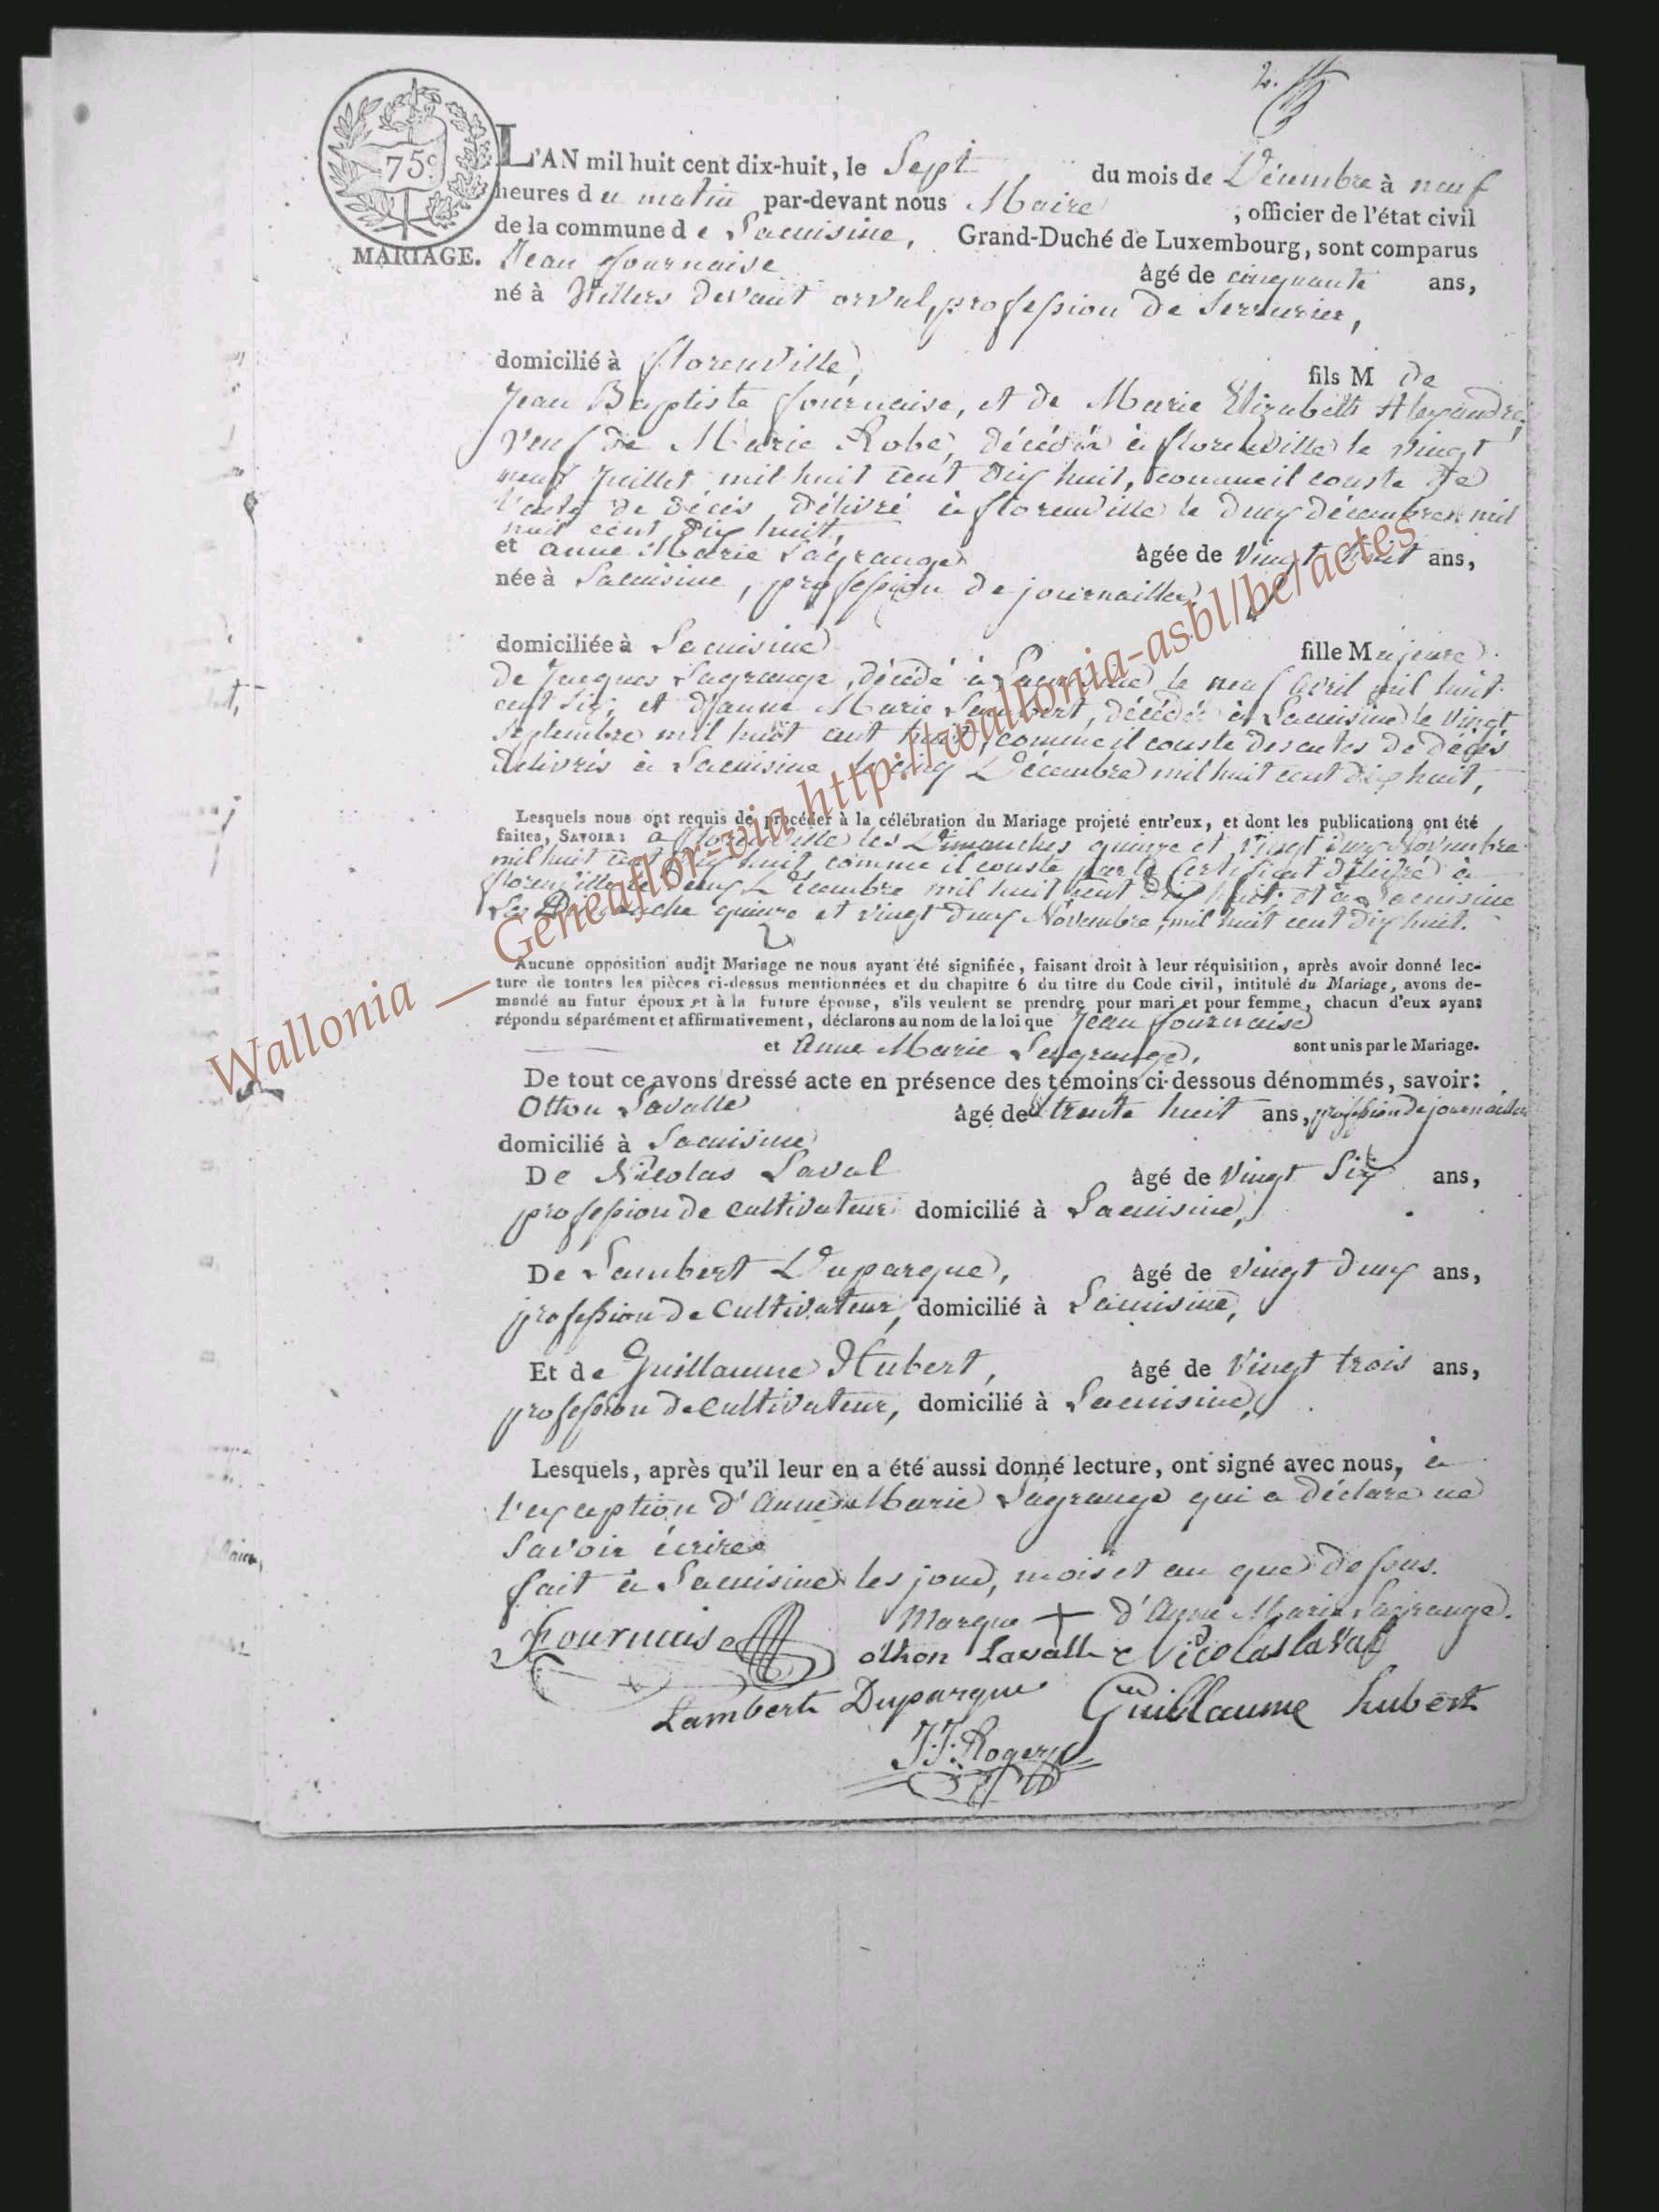 2.
75c
L'AN mil huit cent dix-huit, le Sept du mois de Décembre à neuf
heures du matin par-devant nous Maire, officier de l'état civil
de la commune de Lacuisine, Grand-Duché de Luxembourg, sont comparus
MARIAGE.
Jean fournaise âgé de cinquante ans,
né à Villers devant orval, profession de Serrurier,
domicilié à florenville, fils M de
Jean Baptiste fournaise, et de Marie Elizabeth Alexandre,
veuf de Marie Robe, décédée à florenville le vingt
neuf juillet mil huit cent dix huit, comme il conste de
l'acte de décès délivré à florenville le deux décembre mil
huit cent dix huit,
et anne Marie Lagrange âgée de vingt huit ans,
née à Lacuisine, profession de journailler
domiciliée à Lacuisine fille Majeure
de Jacques Lagrange, décédé à Lacuisine le neuf avril mil huit
cent six, et d'anne Marie Lambert, décédée à Lacuisine le vingt
Septembre mil huit cent huit, comme il conste des actes de décès
délivrés à Lacuisine le cinq Décembre mil huit cent dix huit,
Lesquels nous ont requis de procéder à la célébration du Mariage projeté entr'eux, et dont les publications ont été
faites, SAVOIR: a florenville les Dimanches quinze et vingt deux Novembre
mil huit cent dix huit comme il conste par le Certificat délivré à
florenville le deux Décembre mil huit cent dix huit. et à Lacuisine
Les Dimanche quinze et vingt deux Novembre, mil huit cent dix huit.
Aucune opposition audit Mariage ne nous ayant été signifiée, faisant droit à leur réquisition, après avoir donné lec-
ture de toutes les pièces ci-dessus mentionnées et du chapitre 6 du titre du Code civil, intitulé du Mariage, avons de-
mandé au futur époux et à la future épouse, s'ils veulent se prendre pour mari et pour femme, chacun d'eux ayant
répondu séparément et affirmativement, déclarons au nom de la loi que Jean fournaise
et Anne Marie Lagrange, sont unis par le Mariage.
De tout ce avons dressé acte en présence des témoins ci-dessous dénommés, savoir:
Othon Lavalle âgé de trente huit ans, profession de journaillier
domicilié à Lacuisine
De Nicolas Laval âgé de vingt Six ans,
profession de cultivateur domicilié à Lacuisine,
De Lambert Duparque, âgé de vingt deux ans,
profession de cultivateur, domicilié à Lacuisine,
Et de Guillaume Hubert, âgé de vingt trois ans,
profession de cultivateur, domicilié à Lacuisine,
Lesquels, après qu'il leur en a été aussi donné lecture, ont signé avec nous, à
l'exception d'anne Marie Lagrange qui a déclaré ne
Savoir écrire
fait à Lacuisine les jour, mois et an que dessus.
Marque + d'Anne Marie Lagrange.
Fournaise othon Lavalle Nicolas laval
Lambert Duparque Guillaume hubert
J. J. Roger
Wallonia __ Geneaflor-via http://wallonia-asbl/be/actes